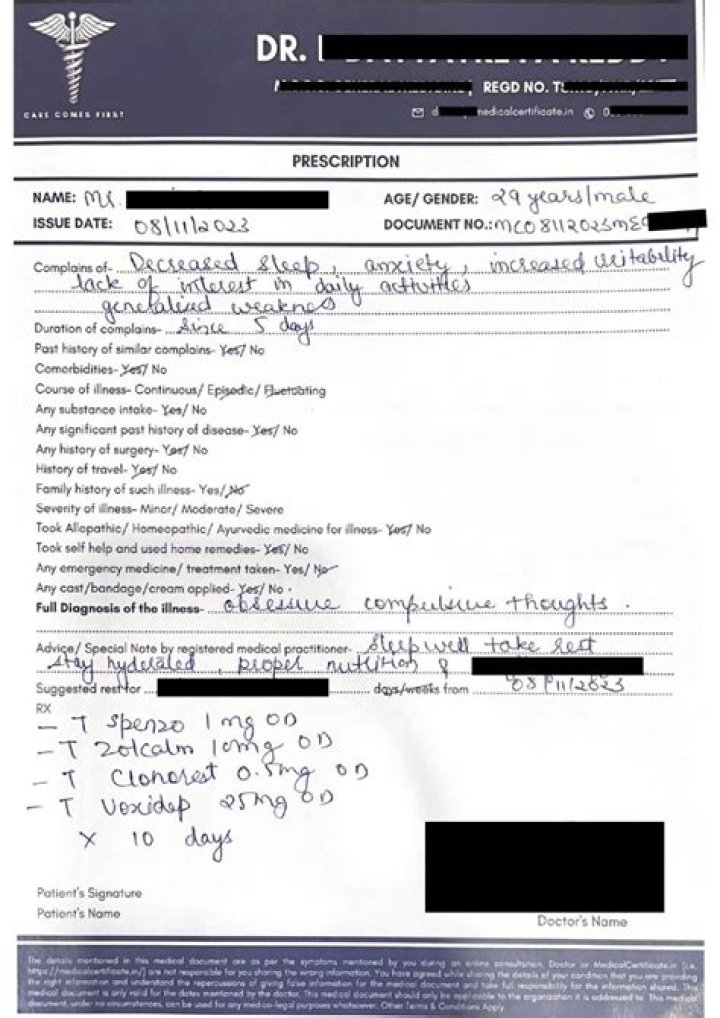 CARE COMES FIRST
DR.
REGD NO.
medicalcertificate.in
PRESCRIPTION
NAME: Mr.
AGE/ GENDER: 29 years/male
ISSUE DATE: 08/11/2023
DOCUMENT NO.: MC08112023ME
Complains of- Decreased sleep, anxiety, increased irritability
lack of interest in daily activities
generalised weakness
Duration of complains- since 5 days
Past history of similar complains- Yes/ No
Comorbidities- Yes/ No
Course of illness- Continuous/ Episodic/ Fluctuating
Any substance intake- Yes/ No
Any significant past history of disease- Yes/ No
Any history of surgery- Yes/ No
History of travel- Yes/ No
Family history of such illness- Yes/ No
Severity of illness- Minor/ Moderate/ Severe
Took Allopathic/ Homeopathic/ Ayurvedic medicine for illness- Yes/ No
Took self help and used home remedies- Yes/ No
Any emergency medicine/ treatment taken- Yes/ No
Any cast/bandage/cream applied- Yes/ No
Full Diagnosis of the illness- obsessive compulsive thoughts.
Advice/ Special Note by registered medical practitioner- Sleep well take rest
stay hyderated, proper nutrition &
Suggested rest for days/weeks from 08/11/2023
RX
- T Spenzo 1 mg OD
- T Zolcalm 10mg OD
- T Clonorest 0.5mg OD
- T Voxidep 25mg OD
x 10 days
Patient's Signature
Patient's Name
Doctor's Name
The details mentioned in this medical document are as per the symptoms mentioned by you during an online consultation. Doctor or MedicalCertificate.in [i.e.
https://medicalcertificate.in/] are not responsible for you sharing the wrong information. You have agreed while sharing the details of your condition that you are providing
the right information and understand the repercussions of giving false information for the medical document and take full responsibility for the information shared. This
medical document is only valid for the dates mentioned by the doctor. This medical document should only be applicable to the organization it is addressed to. This medical
document, under no circumstances, can be used for any medico-legal purposes whatsoever. Other Terms & Conditions Apply